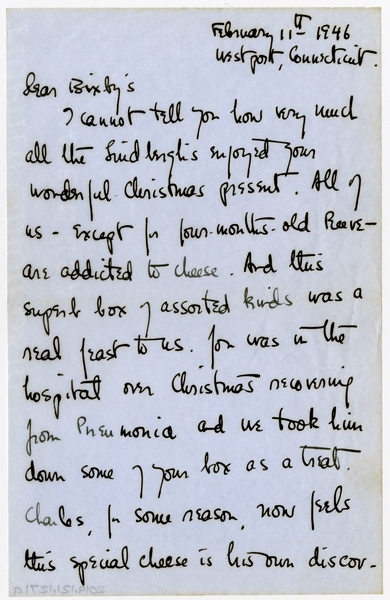 February 11th 1946
Westport, Connecticut.
Dear Bixby's
I cannot tell you how very much
all the Lindberghs enjoyed your
wonderful Christmas present. All of
us - except for four-months-old Reeve -
are addicted to cheese. And this
superb box of assorted kinds was a
real feast to us. Jon was in the
hospital over Christmas recovering
from Pneumonia and we took him
down some of your box as a treat.
Charles, for some reason, now feels
this special cheese is his own discov-